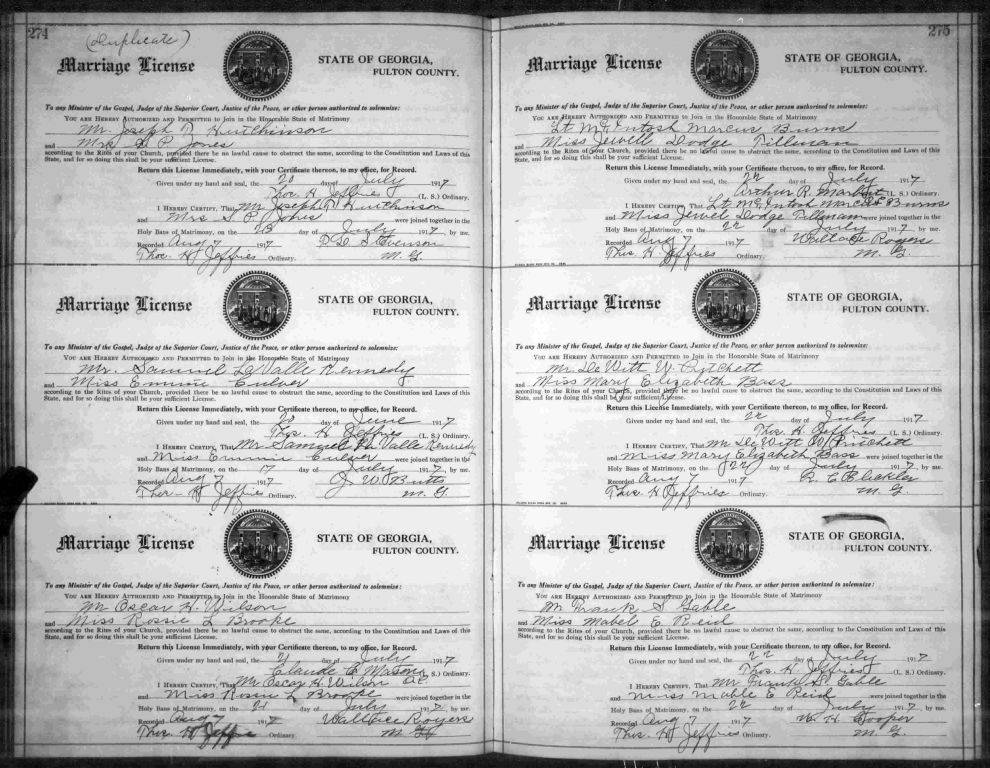 274
(Duplicate)
Marriage License
STATE OF GEORGIA,
FULTON COUNTY.
To any Minister of the Gospel, Judge of the Superior Court, Justice of the Peace, or other person authorized to solemnize:
YOU ARE HEREBY AUTHORIZED AND PERMITTED to Join in the Honorable State of Matrimony
Mr. Joseph D. Hutchinson
and Mrs S. P. Jones
according to the Rites of your Church, provided there be no lawful cause to obstruct the same, according to the Constitution and Laws of this
State, and for so doing this shall be your sufficient License.
Return this License Immediately, with your Certificate thereon, to my office, for Record.
Given under my hand and seal, the 20 day of July 1917
Thos. H. Jeffries (L. S.) Ordinary.
I HEREBY CERTIFY, That Mr Joseph D. Hutchinson
and Mrs S. P. Jones were joined together in the
Holy Bans of Matrimony, on the 23 day of July 1917, by me.
Recorded Aug 7 1917 Stevenson
Thos. H. Jeffries Ordinary. M. G.
Marriage License
STATE OF GEORGIA,
FULTON COUNTY.
To any Minister of the Gospel, Judge of the Superior Court, Justice of the Peace, or other person authorized to solemnize:
YOU ARE HEREBY AUTHORIZED AND PERMITTED to Join in the Honorable State of Matrimony
Mr. Samuel LaValle Kennedy
and Miss Emmie Culver
according to the Rites of your Church, provided there be no lawful cause to obstruct the same, according to the Constitution and Laws of this
State, and for so doing this shall be your sufficient License.
Return this License Immediately, with your Certificate thereon, to my office, for Record.
Given under my hand and seal, the 20 day of June 1917
Thos. H. Jeffries (L. S.) Ordinary.
I HEREBY CERTIFY, That Mr Samuel La Valle Kennedy
and Miss Emmie Culver were joined together in the
Holy Bans of Matrimony, on the 17 day of July 1917, by me.
Recorded Aug 7 1917 J. W. Butts
Thos. H. Jeffries Ordinary. M. G.
Marriage License
STATE OF GEORGIA,
FULTON COUNTY.
To any Minister of the Gospel, Judge of the Superior Court, Justice of the Peace, or other person authorized to solemnize:
YOU ARE HEREBY AUTHORIZED AND PERMITTED to Join in the Honorable State of Matrimony
Mr Oscar H. Wilson
and Miss Rossie L Brooke
according to the Rites of your Church, provided there be no lawful cause to obstruct the same, according to the Constitution and Laws of this
State, and for so doing this shall be your sufficient License.
Return this License Immediately, with your Certificate thereon, to my office, for Record.
Given under my hand and seal, the 21 day of July 1917
Claude C. Mason (L. S.) Ordinary.
I HEREBY CERTIFY, That Mr Oscar H. Wilson
and Miss Rosie L Brooke were joined together in the
Holy Bans of Matrimony, on the 21 day of July 1917, by me.
Recorded Aug 7 1917 Wallace Rogers
Thos. H. Jeffries Ordinary. M. G.
275
Marriage License
STATE OF GEORGIA,
FULTON COUNTY.
To any Minister of the Gospel, Judge of the Superior Court, Justice of the Peace, or other person authorized to solemnize:
YOU ARE HEREBY AUTHORIZED AND PERMITTED to Join in the Honorable State of Matrimony
Lt. McIntosh Marcus Burns
and Miss Jewell Dodge Tillman
according to the Rites of your Church, provided there be no lawful cause to obstruct the same, according to the Constitution and Laws of this
State, and for so doing this shall be your sufficient License.
Return this License Immediately, with your Certificate thereon, to my office, for Record.
Given under my hand and seal, the 22 day of July 1917
Arthur R. Marbut (L. S.) Ordinary.
I HEREBY CERTIFY, That Lt McIntosh Marcus Burns
and Miss Jewel Dodge Tillman were joined together in the
Holy Bans of Matrimony, on the 22 day of July 1917, by me.
Recorded Aug 7 1917 Rogers
Thos. H. Jeffries Ordinary. M. G.
Marriage License
STATE OF GEORGIA,
FULTON COUNTY.
To any Minister of the Gospel, Judge of the Superior Court, Justice of the Peace, or other person authorized to solemnize:
YOU ARE HEREBY AUTHORIZED AND PERMITTED to Join in the Honorable State of Matrimony
Mr. De Witt W. Pritchett
and Miss Mary Elizabeth Bass
according to the Rites of your Church, provided there be no lawful cause to obstruct the same, according to the Constitution and Laws of this
State, and for so doing this shall be your sufficient License.
Return this License Immediately, with your Certificate thereon, to my office, for Record.
Given under my hand and seal, the 22 day of July 1917
Thos. H. Jeffries (L. S.) Ordinary.
I HEREBY CERTIFY, That Mr De Witt W. Pritchett
and Miss Mary Elizabeth Bass were joined together in the
Holy Bans of Matrimony, on the 22 day of July 1917, by me.
Recorded Aug 7 1917 R. C.
Thos. H. Jeffries Ordinary. M. G.
Marriage License
STATE OF GEORGIA,
FULTON COUNTY.
To any Minister of the Gospel, Judge of the Superior Court, Justice of the Peace, or other person authorized to solemnize:
YOU ARE HEREBY AUTHORIZED AND PERMITTED to Join in the Honorable State of Matrimony
Mr Frank S Gable
and Miss Mabel E Reid
according to the Rites of your Church, provided there be no lawful cause to obstruct the same, according to the Constitution and Laws of this
State, and for so doing this shall be your sufficient License.
Return this License Immediately, with your Certificate thereon, to my office, for Record.
Given under my hand and seal, the 22 day of July 1917
Thos. H. Jeffries (L. S.) Ordinary.
I HEREBY CERTIFY, That Mr Frank S. Gable
and Miss Mable E Reid were joined together in the
Holy Bans of Matrimony, on the 22 day of July 1917, by me.
Recorded Aug 7 1917 W. H. Hooper
Thos. H. Jeffries Ordinary. M. G.